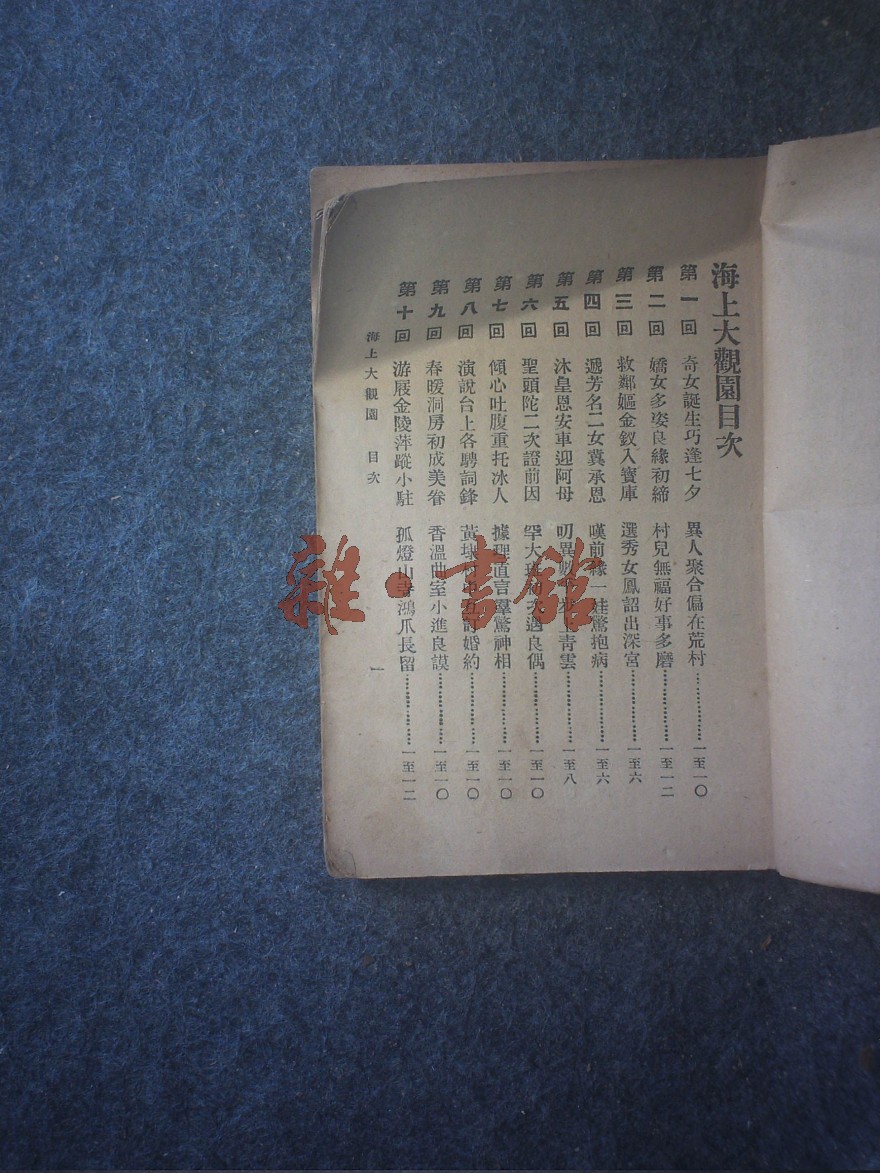 海上大觀園目次
第一回 奇女誕生巧逢七夕 異人聚合偏在荒村……………一至一〇
第二回 嬌女多姿良緣初締 村兒無福好事多磨……………一至一二
第三回 救鄰嫗金釵入寶庫 選秀女鳳詔出深宮……………一至六
第四回 遞芳名二女冀承恩 嘆前緣一娃驚抱病……………一至六
第五回 沐皇恩安車迎阿母 叨異數 青雲……………一至八
第六回 聖頭陀二次證前因 罕大班初次遇良偶……………一至一〇
第七回 傾心吐腹重托冰人 據理直言羣驚神相……………一至一〇
第八回 演說台上各騁詞鋒 黃 訂婚約……………一至一〇
第九回 春暖洞房初成美眷 香溫曲室小進良謨……………一至一〇
第十回 游展金陵萍蹤小駐 孤燈山寺鴻爪長留……………一至一二
海上大觀園 目次 一
雜·書館